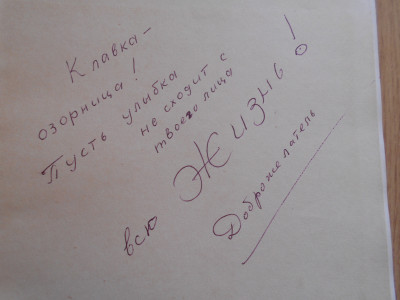 Клавка –
озорница!
Пусть улыбка
не сходит с
твоего лица
всю ЖИЗНЬ!
Доброжелатель